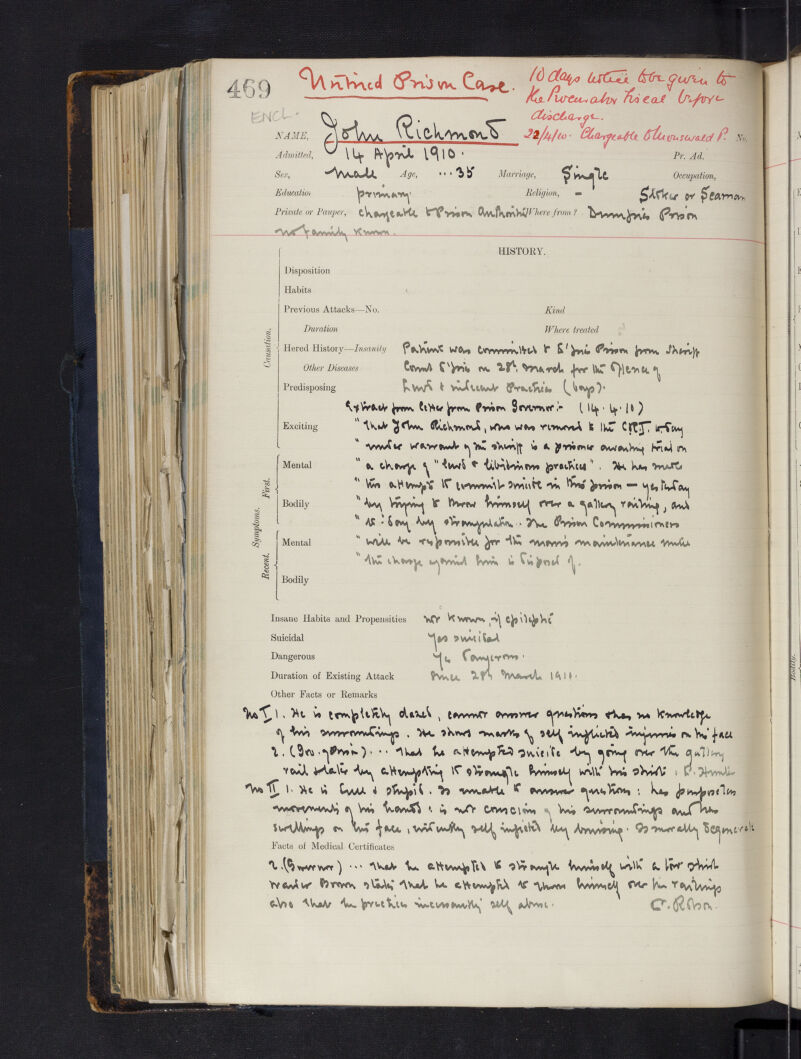 469 Untried Prison Case. 10 days notice to be given to
the Procurator Fiscal before
discharge.
ENCL.
22/4/10. Chargeable to P.
NAME, John Richmond No.
Admitted, 14 April 1910. Pr. Ad.
Sex, Male Age, ... 35 Marriage, Single Occupation,
Education primary Religion, – Stoker or Seaman
Private or Pauper, chargeable to Prison Authorities Where from? Dumfries Prison
no family known.
HISTORY.
Disposition
Habits
Previous Attacks—No. Kind
Duration Where treated
Causation.
Hered History—Insanity Patient was committed to D'fries Prison from Sheriff
Other Diseases Court D'fries on 28th March for the Offence of
Predisposing Lewd & indecent Practices (boys).
Extract from letter from Prison Governor:- (14.4.10)
Exciting " That John Richmond, who was removed to the C.R.I. today
" under warrant of the sheriff is a prisoner awaiting trial on
Symptoms. First. Recent.
Mental " a charge of "lewd & libidinous practices". He has made
" two attempts to commit suicide in this prison — yesterday
Bodily " by trying to throw himself over a gallery railing, and
" to-day by strangulation. The Prison Commissioners
Mental " will be responsible for the man's maintenance until
" the charge against him is disposed of.
Bodily
Insane Habits and Propensities not known, if epileptic
Suicidal Yes suicidal
Dangerous Yes Dangerous.
Duration of Existing Attack Since 28th March 1910.
Other Facts or Remarks
No I 1. He is completely dazed, cannot answer questions & has no knowledge
of his surroundings. He shows marks of self inflicted injuries on his face
2. (Gov. of Prison) ... That he attempted suicide by going over the gallery
rail & later by attempting to strangle himself with his shirt:
No II 1. He is dull & stupid. Is unable to answer questions: has purposeless
movements of his hands: is not conscious of his surroundings and has
swellings on his face, evidently self inflicted by bruising. Is morally degenerate
Facts of Medical Certificates
2. (Governor) ... That he attempted to strangle himself with a torn shirt
Warder Brown states that he attempted to throw himself over the railings
also that he practices incessantly self abuse. Robson.